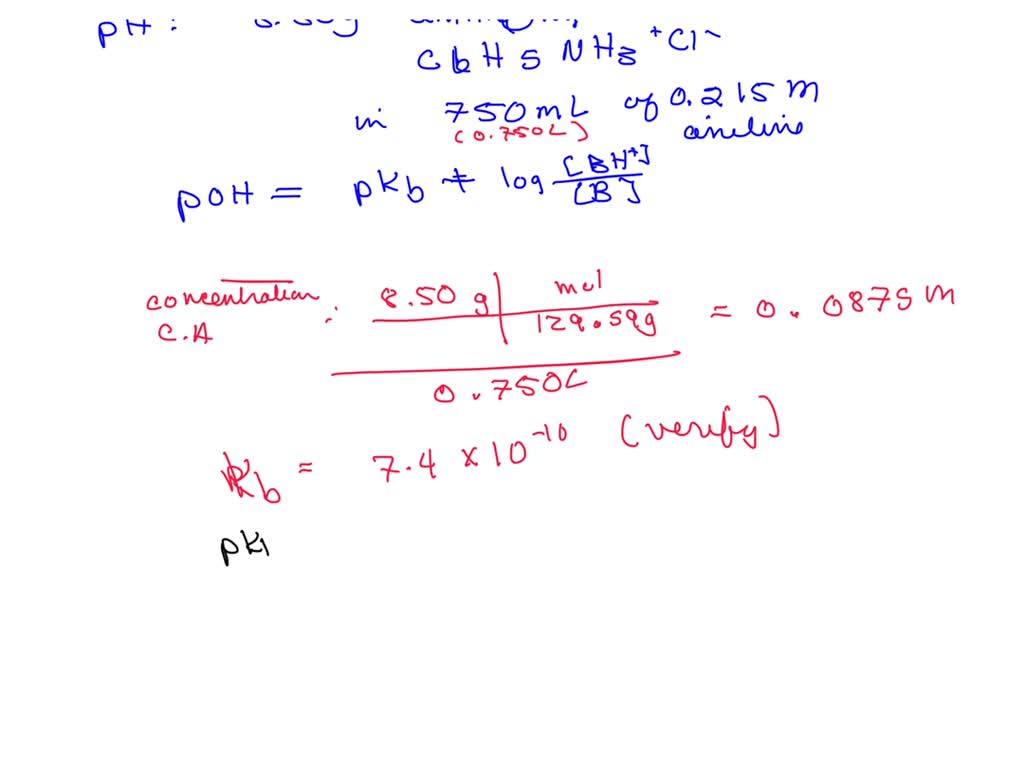 pH :
C6H5NH3+Cl-
in 750mL of 0.215 M
(0.750L) aniline
pOH = pKb + log [BH+]/[B]
concentration C.A : 8.50 g | mol / 129.59g = 0.0875 M
0.750L
Kb = 7.4 × 10^-10 (verify)
pK